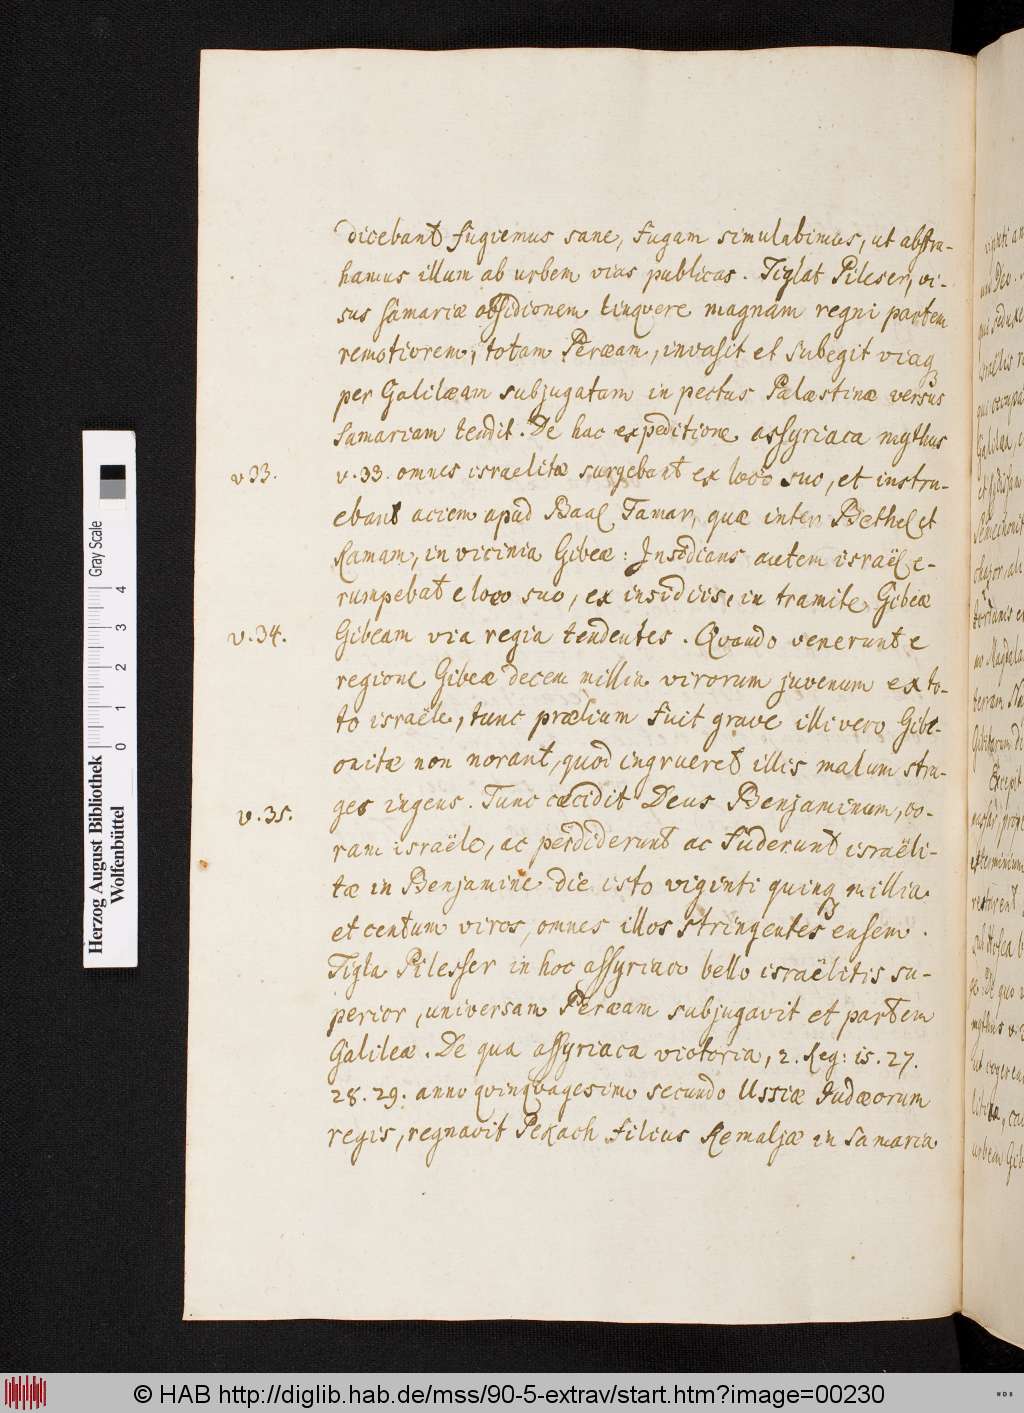 dicebant fugiemus sane, fugam simulabimus, ut abstra-
hamus illum ab urbem vias publicas. Tiglat Pileser, vi-
sus Samariæ obsidionem linqvere magnam regni partem
remotiorem, totam Peræam, invasit et subegit viaq3
per Galilæam subjugatam in pectus Palæstinæ versus
Samariam tendit. De hac expeditione assyriaca mythus
v 33.
v. 33. omnes israelitæ surgebant ex loco suo, et instru-
ebant aciem apud Baal Tamar, quæ inter Bethel et
Ramam, in vicinia Gibeæ: Insidians autem israël e-
rumpebat e loco suo, ex insidiis, in tramite Gibeæ
v. 34.
Gibeam via regia tendentes. Qvando venerunt e
regione Gibeæ decem millia virorum juvenum ex to-
to israële, tunc prælium fuit grave illi vero Gibe-
onitæ non norant, quod ingrueret illis malum stra-
v. 35.
ges ingens. Tunc cæcidit Deus Benjaminum, co-
ram israële, ac perdiderunt ac fuderunt israëli-
tæ in Benjamine die isto viginti quinq3 millia
et centum viros, omnes illos stringentes ensem.
Tigla Pilesser in hoc assyriaco bello israëlitis su-
perior, universam Peræam subjugavit et partem
Galileæ. De qua assyriaca victoria, 2. Reg: 15. 27.
28. 29. anno qvinqvagesimo secundo Ussiæ Judæorum
regis, regnavit Pekach filius Remaljæ in Samaria
Herzog August Bibliothek
Wolfenbüttel
Gray Scale
0 1 2 3 4
© HAB http://diglib.hab.de/mss/90-5-extrav/start.htm?image=00230